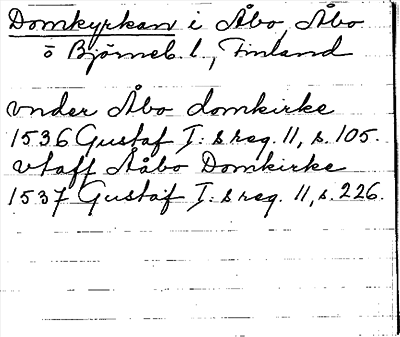 Domkyrkan i Åbo Åbo
o Björneb. l., Finland
vnder Åbo domkirke
1536 Gustaf I:s reg. 11, s. 105.
vtaff Aåbo Domkirke
1537 Gustaf I:s reg. 11, s. 226.